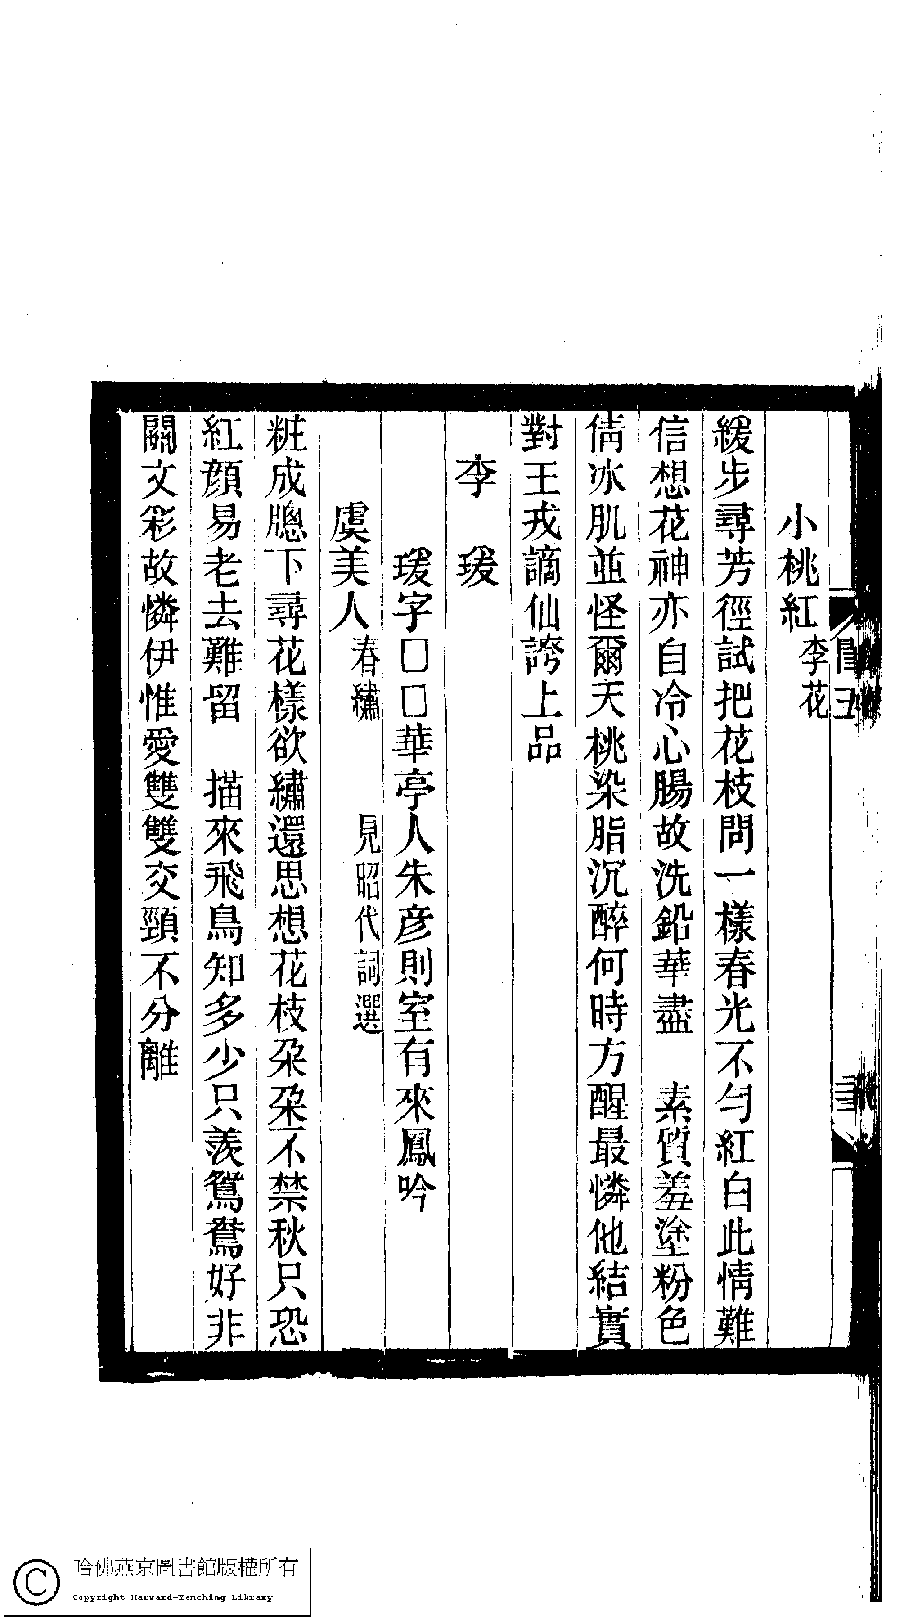 小桃紅李花
緩步尋芳徑試把花枝問一樣春光不勻紅白此情難
信想花神亦自冷心腸故洗鉛華盡　素質羞塗粉色
倩冰肌並怪爾天桃染脂沉醉何時方醒最憐他結實
對王戎謫仙誇上品
李　瑗
瑗字□□華亭人朱彥則室有來鳳吟
虞美人春繡　見昭代詞選
粧成牕下尋花樣欲繡還思想花枝朶朶不禁秋只恐
紅顔易老去難留　描來飛鳥知多少只羨鴛鴦好非
關文彩故憐伊惟愛雙雙交頸不分離
哈佛燕京圖書館版權所有
Copyright Harvard-Yenching Library